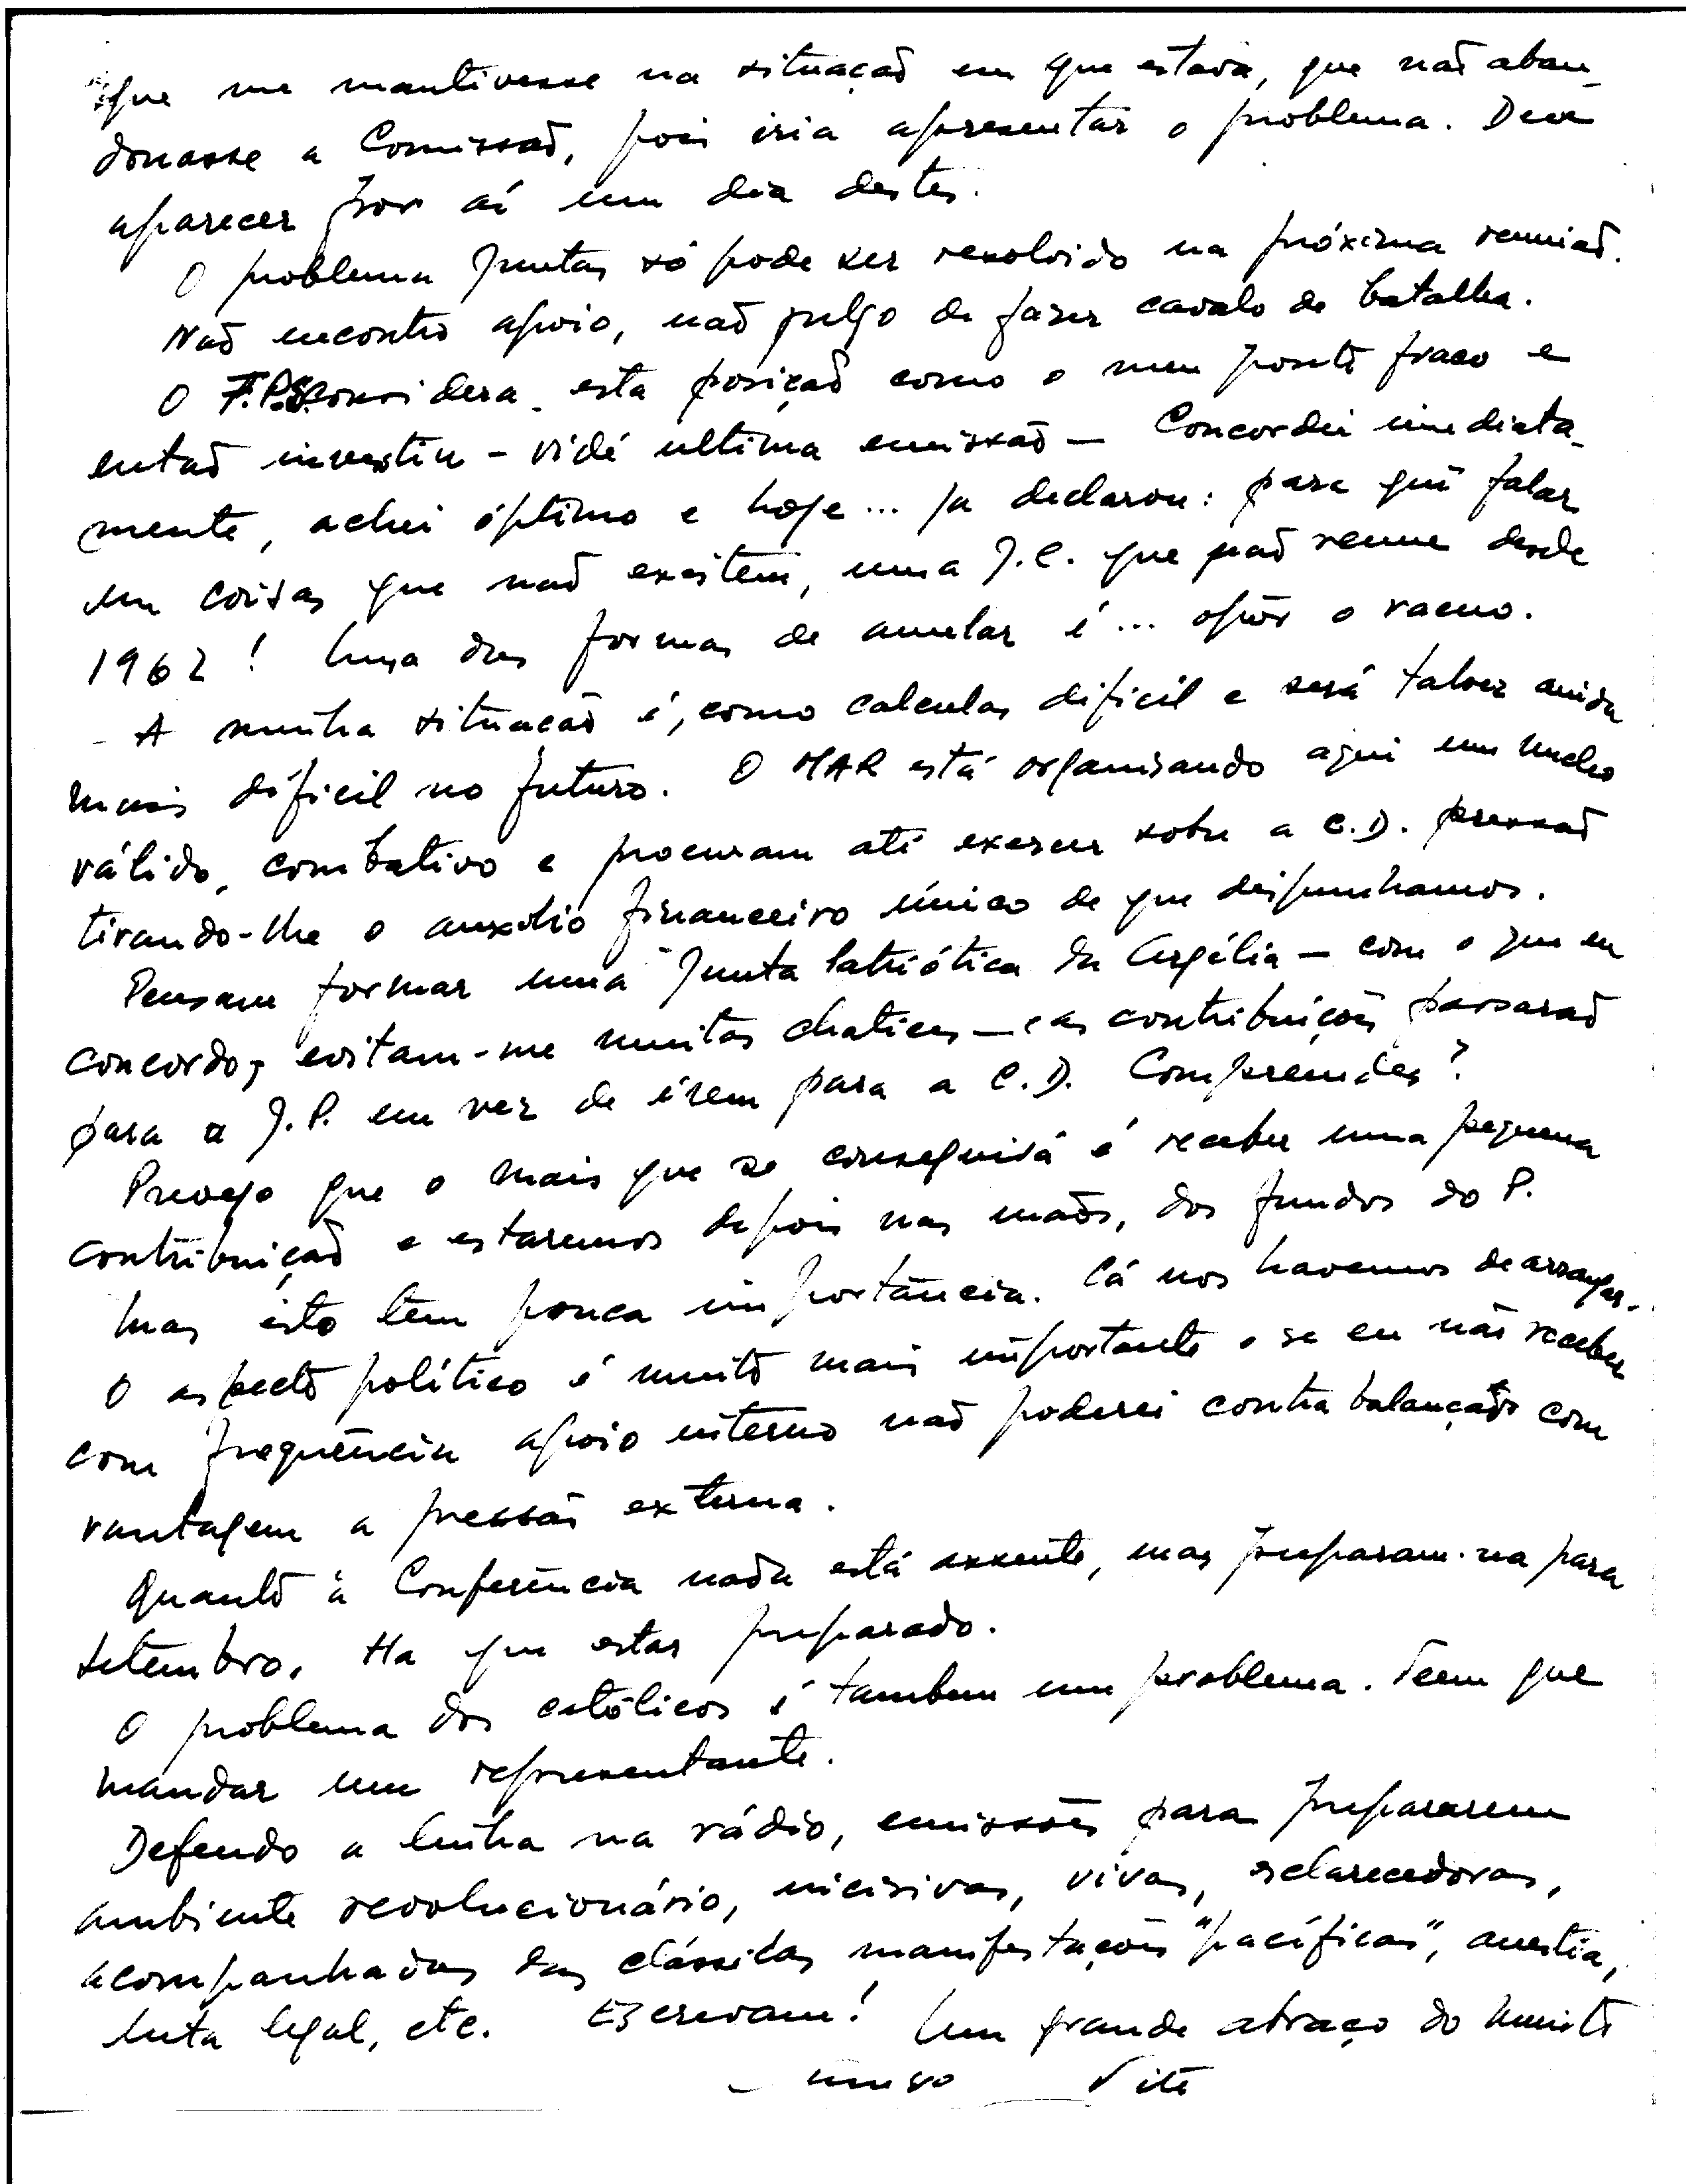 que me mantivesse na situação em que estava, que não aban-
donasse a Comissão, pois iria apresentar o problema. Deve
aparecer por aí um dia destes.
O problema Juntas só pode ser resolvido na próxima reunião.
Não encontro apoio, não julgo de fazer cavalo de batalha.
O F.P.S. considera esta posição como o meu ponto fraco e
então investiu - vidé ultima emissão - Concordei imediata-
mente, achei óptimo e hoje... ja declarou: para quê falar
em coisas que não existem, uma J.C. que não reune desde
1962! Uma das formas de anular é... opôr o vacuo.
- A minha situação é, como calculas dificil e será talvez ainda
mais dificil no futuro. O MAR está organisando aqui um nucleo
válido, combativo e procuram até exercer sobre a C.D. pressão
tirando-lhe o auxilio financeiro único de que dispunhamos.
Pensam formar uma Junta Patriótica da Argélia - com o que eu
concordo, evitam-me muitas chatices - e as contribuições passarão
para a J.P. em vez de irem para a C.D. Comprendes?
Prevejo que o mais que se conseguirá é receber uma pequena
contribuição e estaremos depois nas mãos, dos fundos do P.
Mas isto tem pouca importância. Cá nos havemos de arranjar.
O aspecto político é muito mais importante e se eu não receber
com frequência apoio interno não poderei contrabalançar com
vantagem a pressão externa.
Quanto à Conferência nada está assente, mas preparam-na para
Setembro. Ha que estar preparado.
O problema dos católicos é tambem um problema. Teem que
mandar um representante.
Defendo a linha na rádio, emissões para prepararem
ambiente revolucionário, incisivas, vivas, esclarecedoras,
acompanhadas das clássicas manifestações "pacíficas", amnistia,
luta legal, etc. Escrevam! Um grande abraço do muito